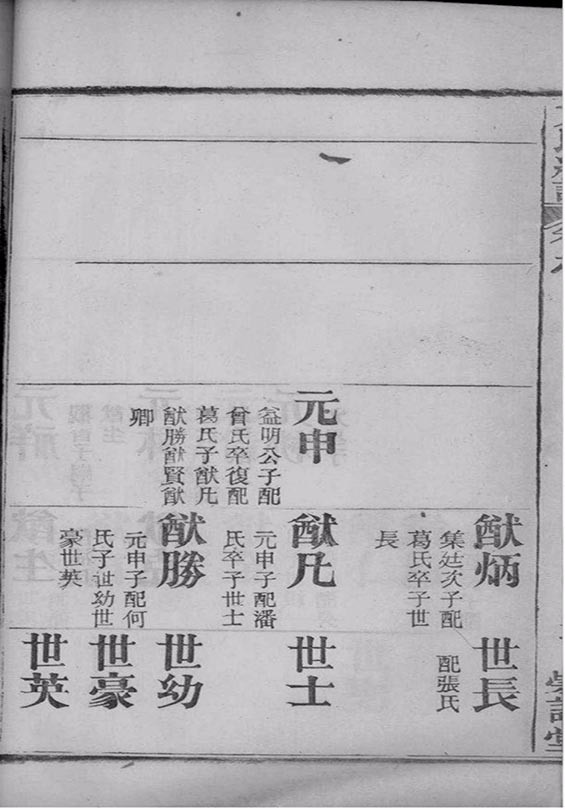 元申
益明公子配
曾氏卒復配
葛氏子猷凡
猷勝猷賢猷
卿
猷炳
集廷次子配
葛氏卒子世
長
猷凡
元申子配潘
氏卒子世士
猷勝
元申子配何
氏子世幼世
豪世英
世長
配張氏
世士
世幼
世豪
世英